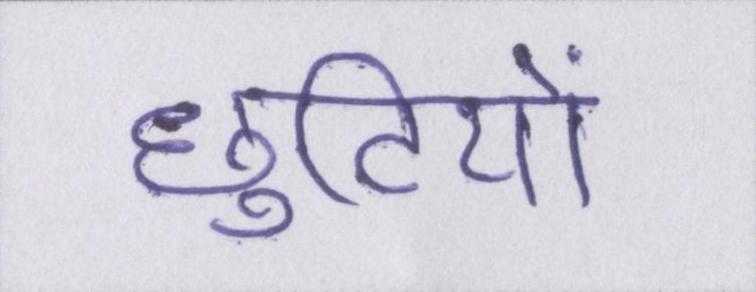 छुटियों